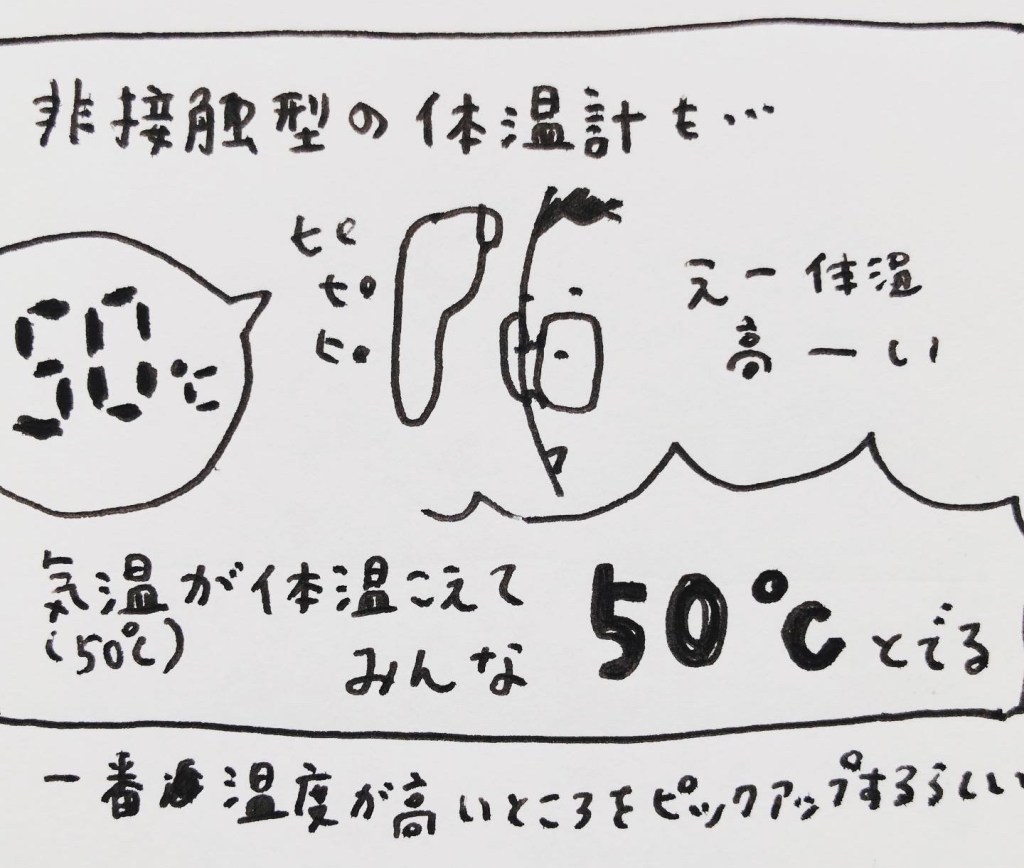 非接触型の体温計も…
ピピピ
50℃
えー体温
高ーい
気温が体温こえて
(50℃)
みんな 50℃とでる
一番温度が高いところをピックアップするらしい